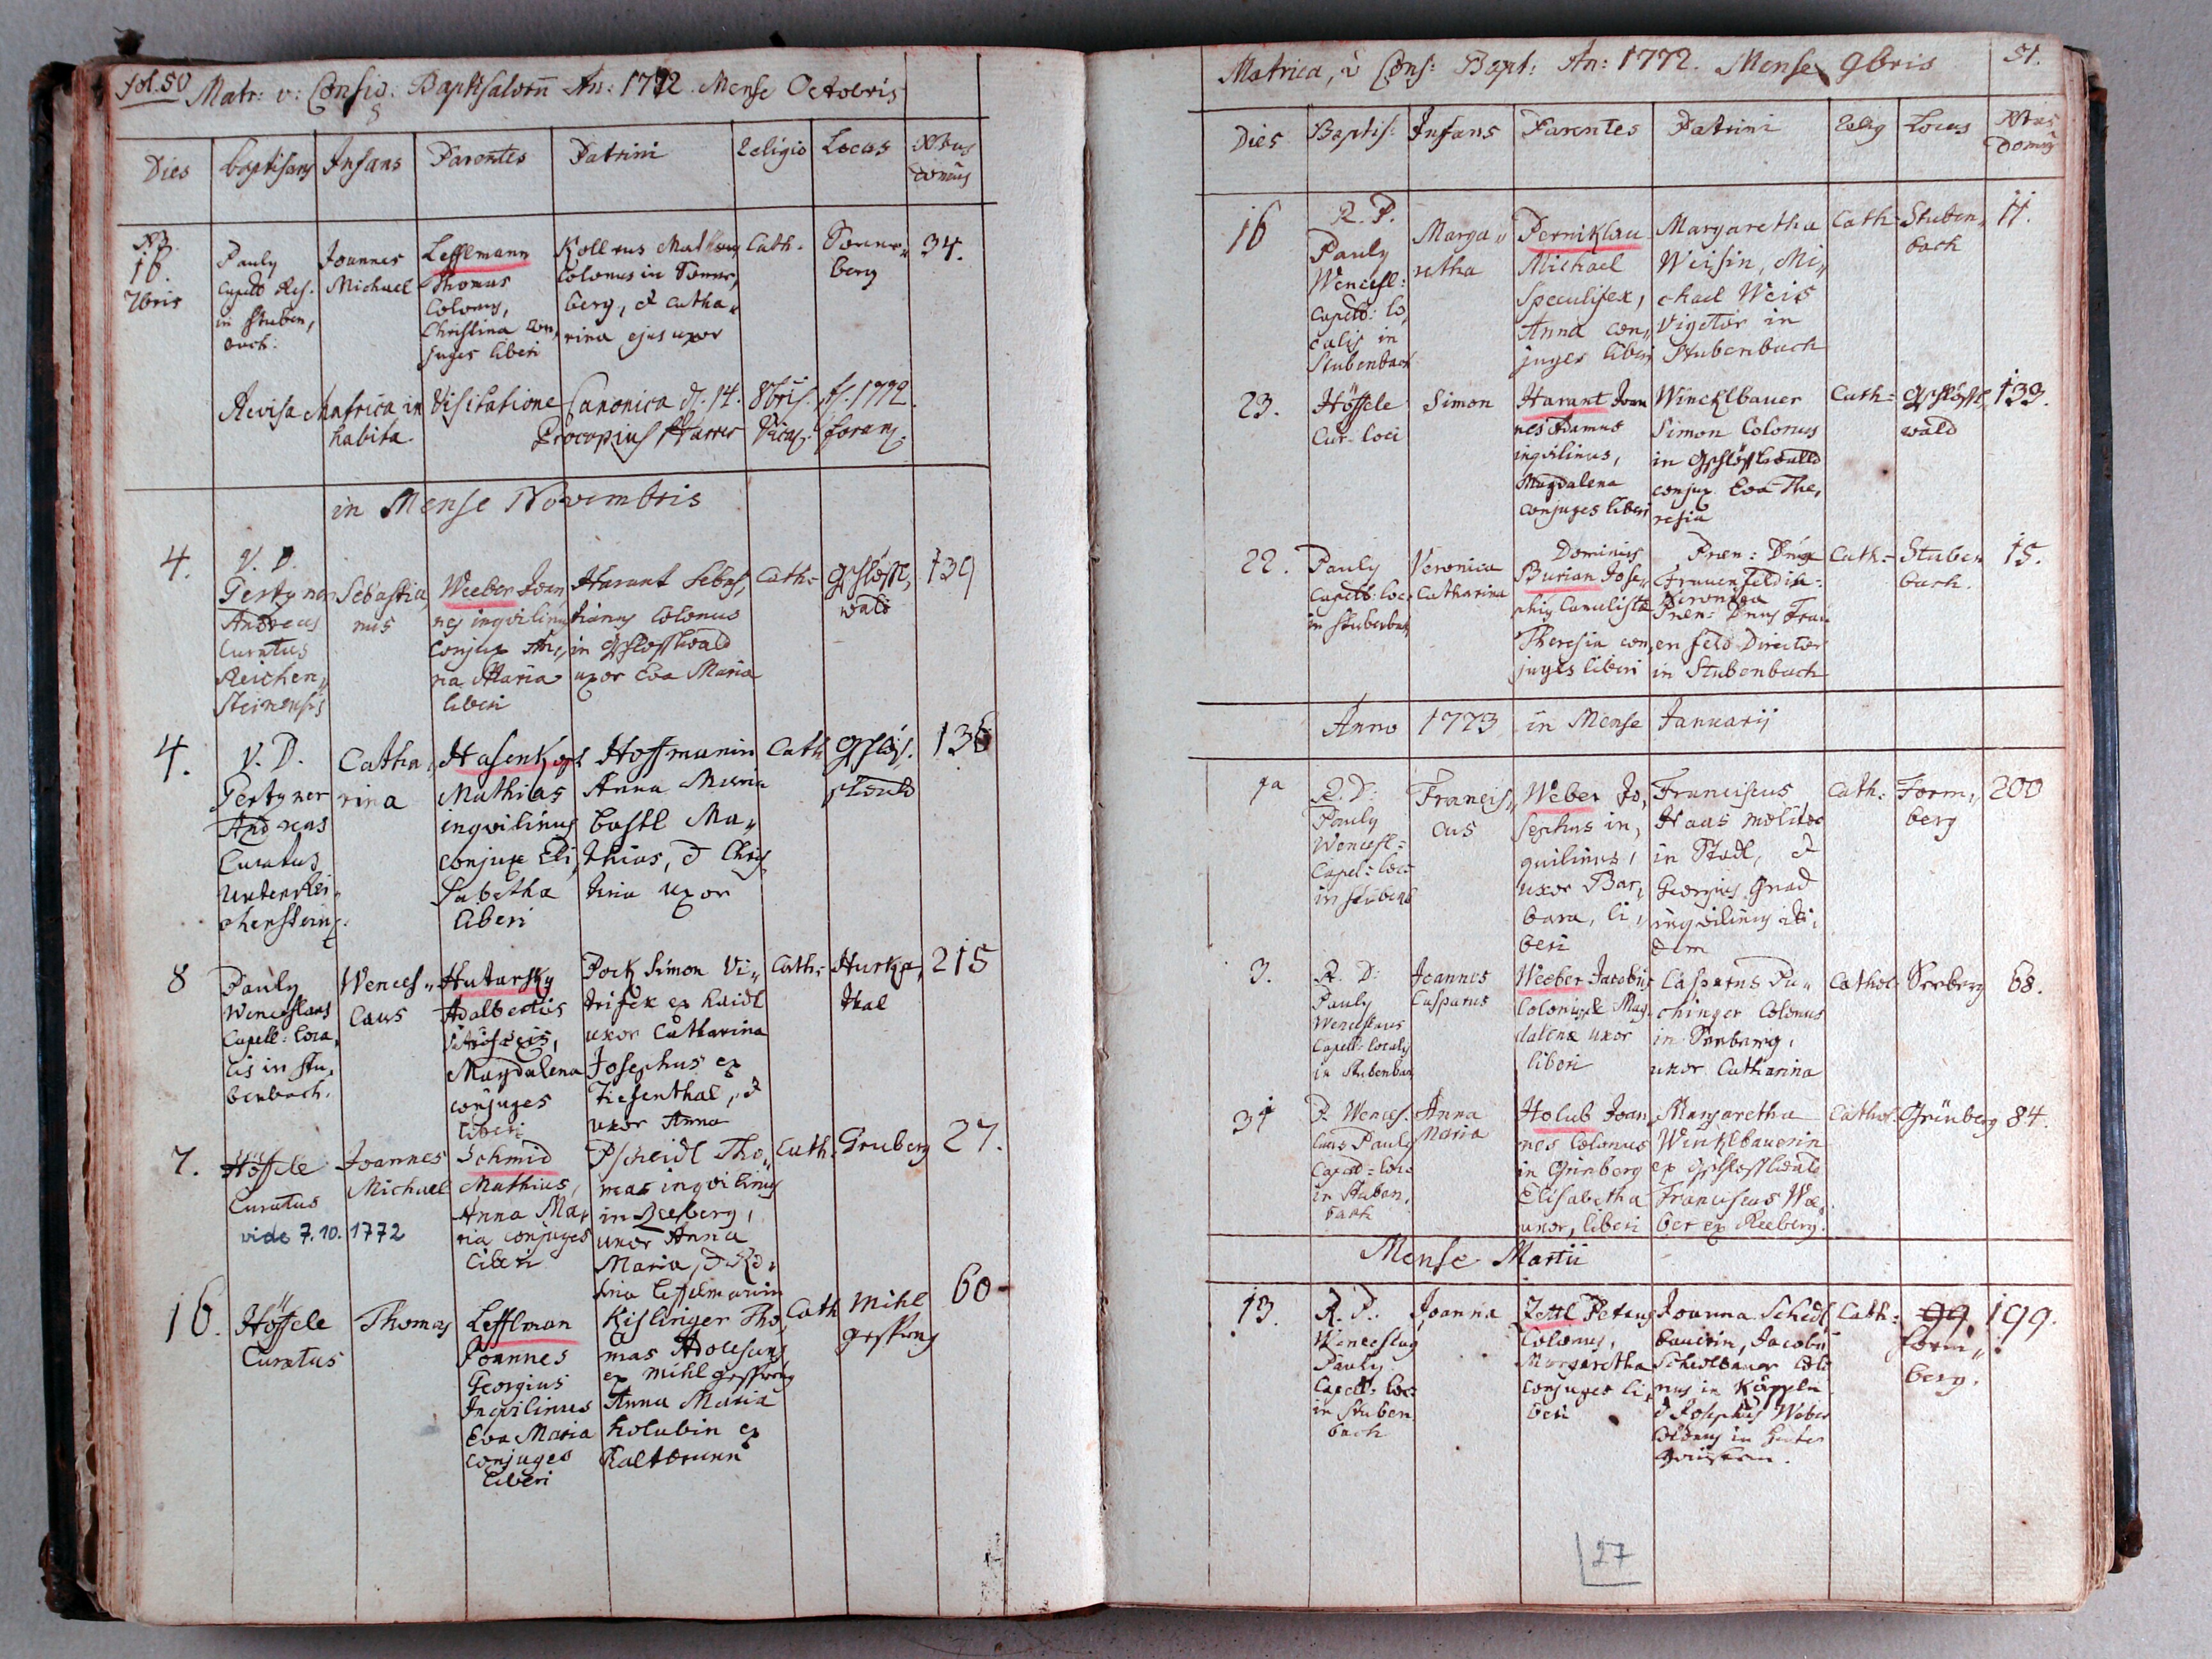 fol. 50 Matr: v: Consig. Baptisatorũ An: 1772. Mense Octobris
Dies Baptisans Infans Parentes Patrini Religio Locus Nrus domûs
16. 7bris
Pauly
Capell. Res.
in Stuben,
bach.
Joannes
Michael
Lefflmann
Thomas
Colonus,
Christina con,
juges liberi
Kollrus Mathias
Colonus in
berg, & Catha„
rina ejus uxor
Cath.
berg
34.
Revisa Matrica in Visitatione Canonica d. 14. 8bris 1772
habita. Procopius Vicar. foran.
in Mense Novembris
4.
V. D.
Pertyner
Andreas
Curatus
Reichen„
steinensis
Sebastia,
nus
Weeber Joan
nes inqvilinus
Conjux An„
na Maria
liberi
Harant Sebas,
tianus Colonus
in Gschlosslwald
uxor Eva Maria
Cath:
Gschlössl,
wald
139
4.
V. D.
Pertyner
Andreas
Curatus
Unterrei„
chenstein.
Catha,
rina
Hasenkopf
Mathias
inqvilinus
conjux Eli,
sabetha
liberi
Hoffmanin
Anna Maria
bastl Ma„
thias, & Chris
tina uxor
Cath
Gschlös.
slwald
136
8
Pauly
Wenceslaus
Capell: loca,
lis in Stu,
benbach.
Wences„
laus
Hutarsky
Adalbertus
Magdalena
conjuges
liberi
Pock Simon Vi„
trifex ex Haidl
uxor Catharina
Josephus ex
Tiefenthal, &
uxor Anna
Cath:
Hurka,
thal
215
7.
Höffele
Curatus
vide 7. 10. 1772
Joannes
Michael
Schmid
Mathias,
Anna Ma,
ria conjuges
liberi
Pscheidl Tho„
mas inqvilinus
in Seeberg,
uxor Anna
Maria, & Ro,
sina Lefflmanin
Cath.
Gruberg
27.
16.
Höffele
Curatus
Thomas
Lefflman
Joannes
Georgius
Inqvilinus
Eva Maria
conjuges
liberi
Kislinger Tho
mas Adolescens
ex Mihlgessprong
Anna Maria
Holubin ex
Kaltbrunn
Cath
Mihl
gessprong
60
Matrica, v Cons: Bapt: An: 1772. Mense 9bris 51.
Dies Baptis: Infans Parentes Patrini Relig Locus Nrus Domûs
16
R. P.
Pauly
Wencesl:
Capell: lo,
calis in
Stubenbach
Marga„
retha
Perniklau
Michael
Speculifex,
Anna con„
juges liberi
Margaretha
Weisin, Mi„
chael Weis
Vigitor in
Stubenbach
Cath:
Stuben„
bach
11.
23.
Höffele
Cur: loci
Simon
Harant Joan
nes Adamus
inqvilinus,
Magdalena
conjuges liberi
Wincklbauer
Simon Colonus
in Gschlösslwald
conjux Eva The,
resia
Cath:
Gschlössl,
wald
133.
22.
Pauly
Capell: loc.
in Stubenbach
Veronica
Catharina
Dominus
Burian Jose„
phus Canulista
Theresia con,
juges liberi
Præn: Dna
Frauenfeldin
Veronica
Præn: Dnus Frau
en feld Director
in Stubenbach
Cath:
Stuben
bach.
15.
Anno 1773 in Mense Januarij
1a
R. D:
Pauly
Wencesl:
Capel: loci
in Stubenb
Francis„
cus
Weber Jo,
sephus in,
quilinus,
uxor Bar,
bara, li,
beri
Franciscus
Haas molitor
in Stadl, &
Georgius Gnad
inqvilinus ibi,
dem
Cath:
Form„
berg
200
3.
R. D:
Pauly
Wenceslaus
Capell: localis
in Stubenbach
Joannes
Casparus
Weeber Jacobus
Colonus & Mag,
dalena uxor
liberi
Casparus Pu„
chinger Colonus
in Seeberg,
uxor Catharina
Cathol:
Seeberg
68.
31
P. Wences.
laus Pauly
Capell: loc:
in Stuben,
bach
Anna
Maria
Holub Joan
nes Colonus
in Grünberg
Elisabetha
uxor, liberi
Margaretha
Winklbauerin
ex Gschlosslwald
Franciscus We,
ber ex Reeberg.
Cathol.
Grünberg
84.
Mense Martii
13.
R. P.
Wenceslaus
Pauly
Capell: loc:
in Stuben
bach
Joanna
Zettl Petrus
Colonus,
Margaretha
conjuges li,
beri
Joanna Schedl
bauerin, Jacobus
Schedlbauer Colo
nus in Käppeln
& Josephus Weber
Colonus in
Cath:
99.
Form„
berg.
199.
27